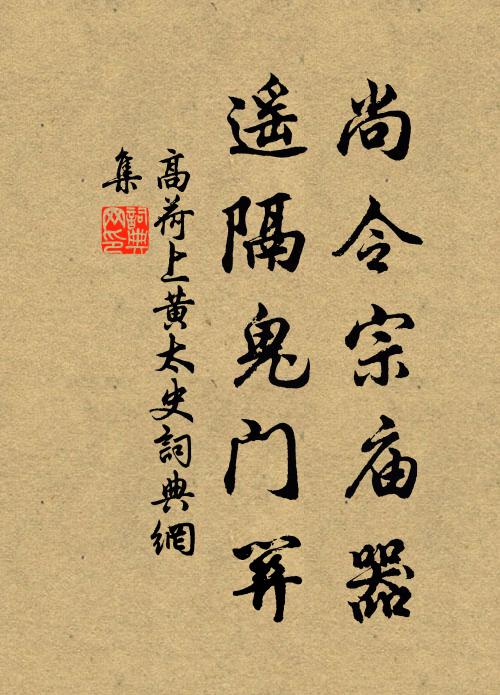 尚令宗庙器
遥隔鬼门关
高荷上黄太史詞典網
集
詞典
网印